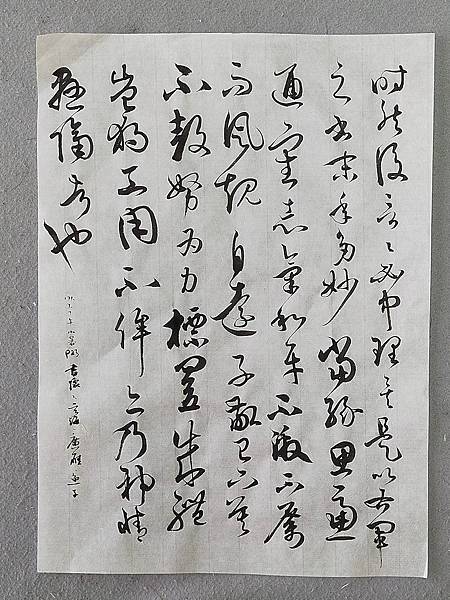 時然後言々必中理矣是以右軍
之書末年多妙當緣思慮
通審志氣和平不激不厲
而風規自遠子敬已下莫
不鼓努為力標置成體
豈獨工用不侔亦乃神情
懸隔者也